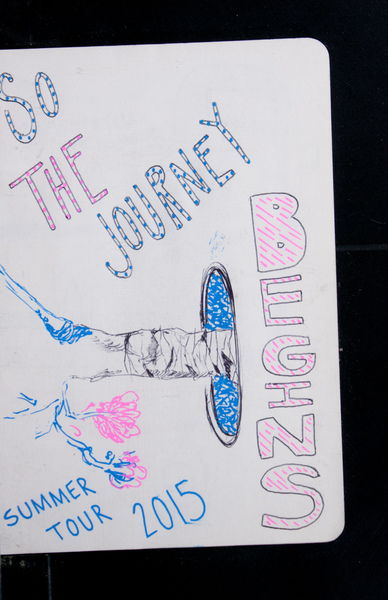 SO
THE
JOURNEY
BEGINS
SUMMER
TOUR 2015